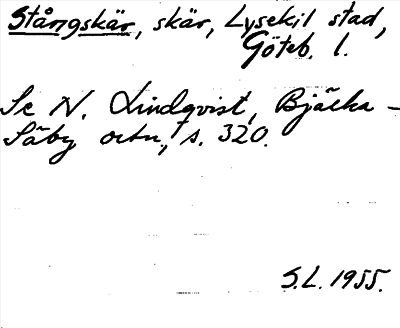 Stångskär, skär, Lysekil stad,
Göteb. l.
Se N. Lindqvist, Bjärka-
Säby ortn., s. 320.
S.L. 1955.